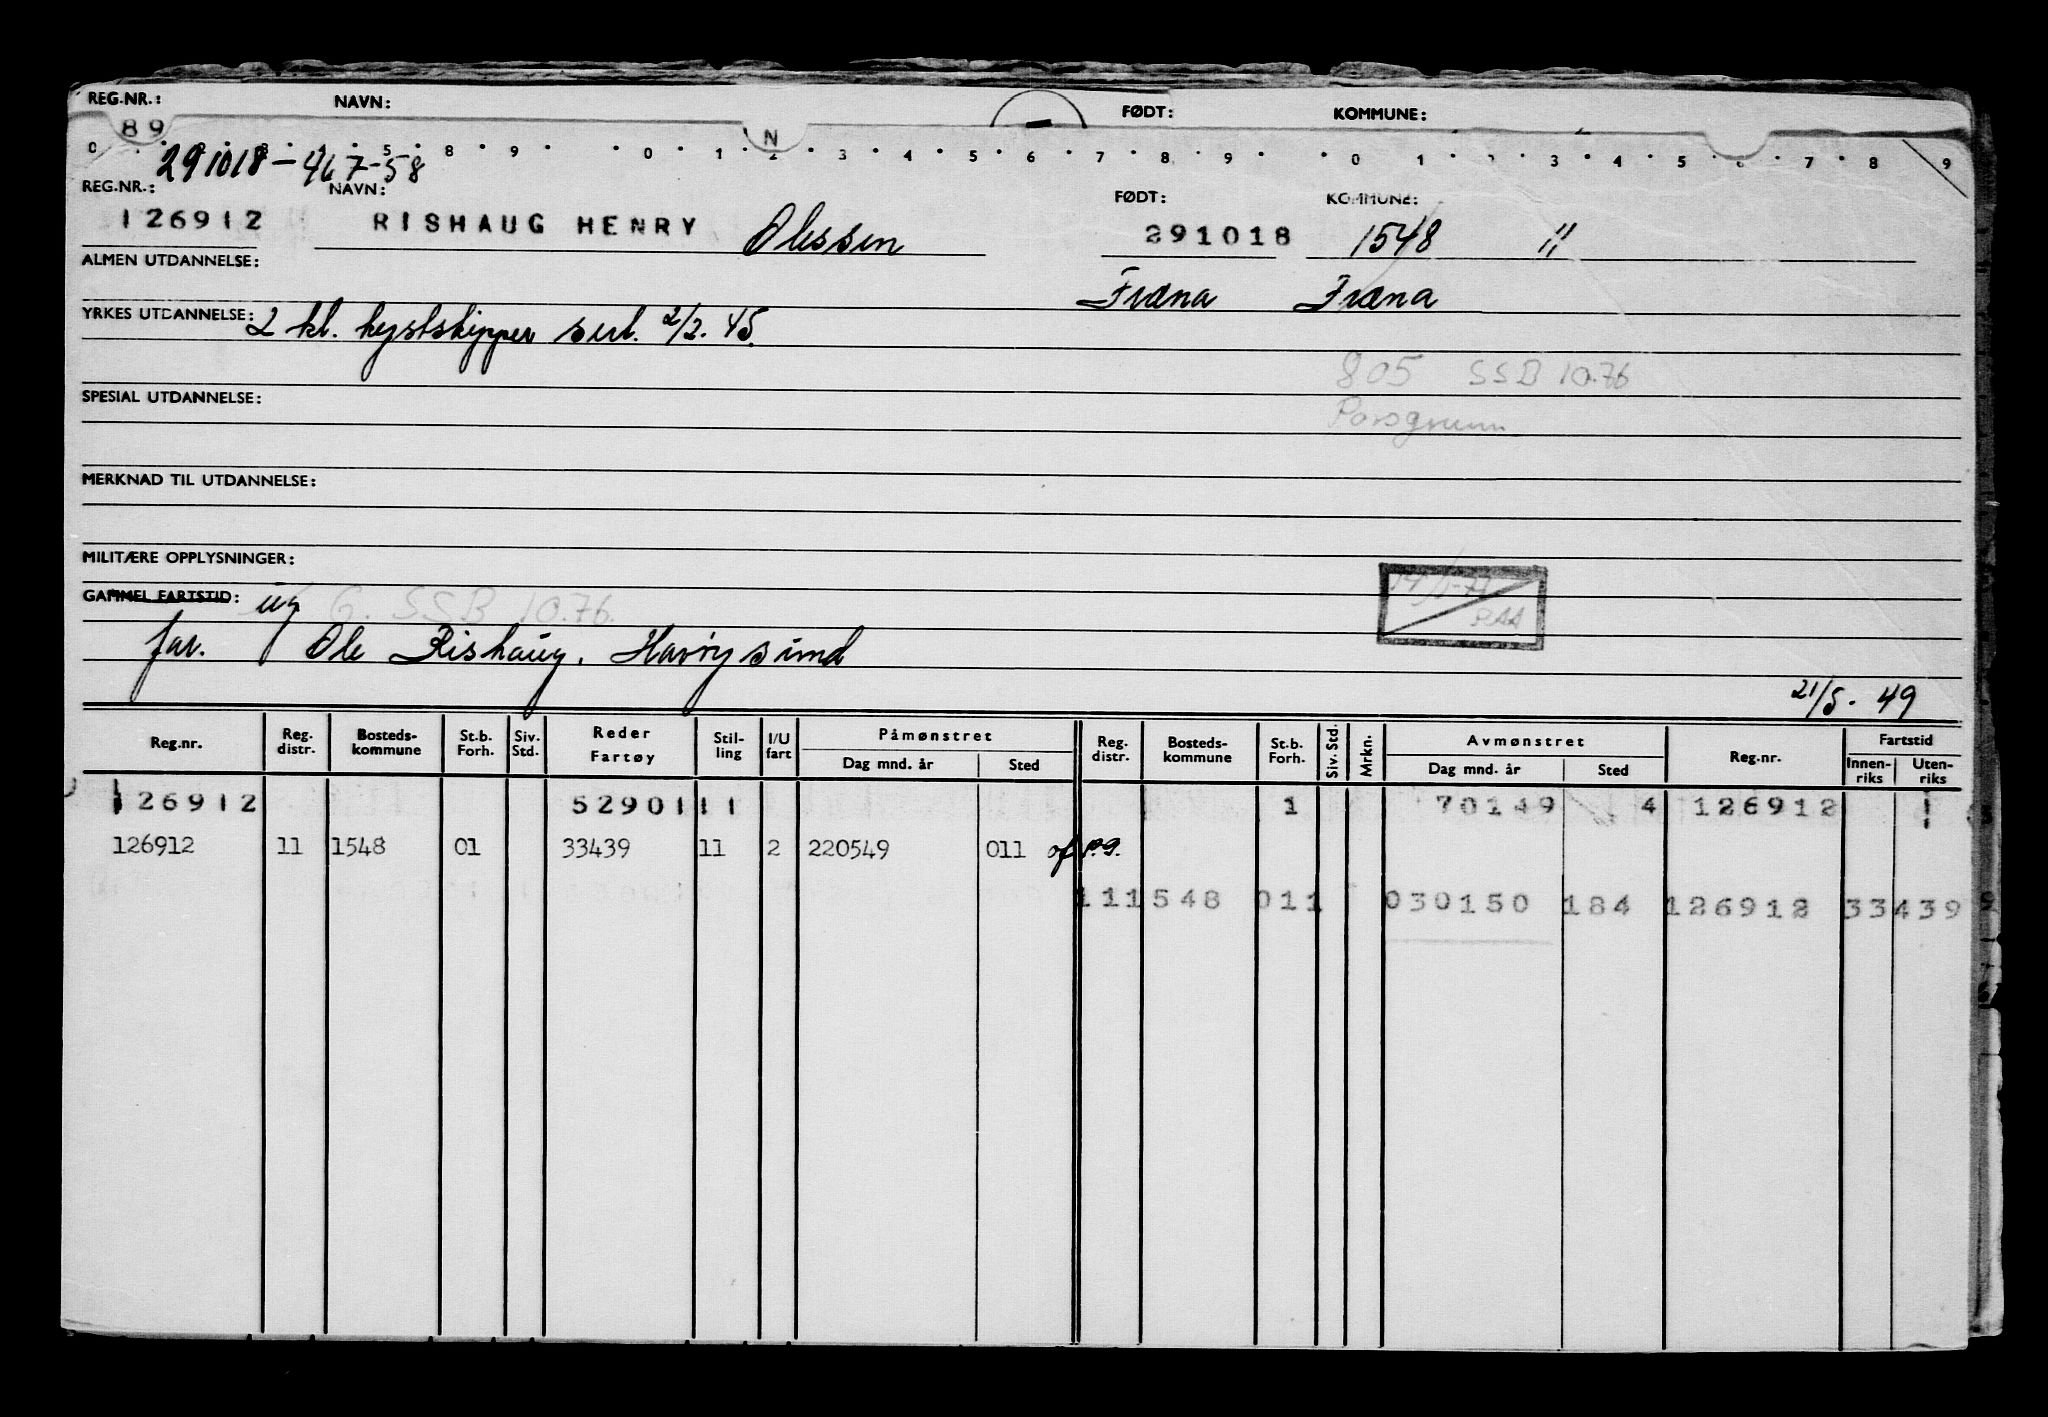 REG.NR.: NAVN: FØDT: KOMMUNE:
89 N
291018-467-58
REG.NR.: NAVN: FØDT: KOMMUNE:
126912 RISHAUG HENRY Olessen 291018 1548 11
ALMEN UTDANNELSE:
Fræna Fræna
YRKES UTDANNELSE: 2 kl. kystskipper sert. 2/2. 45.
805 SSB 10.76
SPESIAL UTDANNELSE: Porsgrunn
MERKNAD TIL UTDANNELSE:
MILITÆRE OPPLYSNINGER:
GAMMEL FARTSTID: ug G. SSB 10.76.
far. Ole Rishaug, Havøysund
21/5. 49
Reg.nr. Reg. distr. Bosteds-kommune St.b. Forh. Siv. Std. Reder Fartøy Stil-ling I/U fart Påmønstret Dag mnd. år Sted Reg. distr. Bosteds-kommune St.b. Forh. Siv. Std. Mrkn. Avmønstret Dag mnd. år Sted Reg.nr. Fartstid Innen-riks Uten-riks
126912 5290111 1 70149 4 126912
126912 11 1548 01 33439 11 2 220549 011 of p.g.
111548 011 030150 184 126912 33439